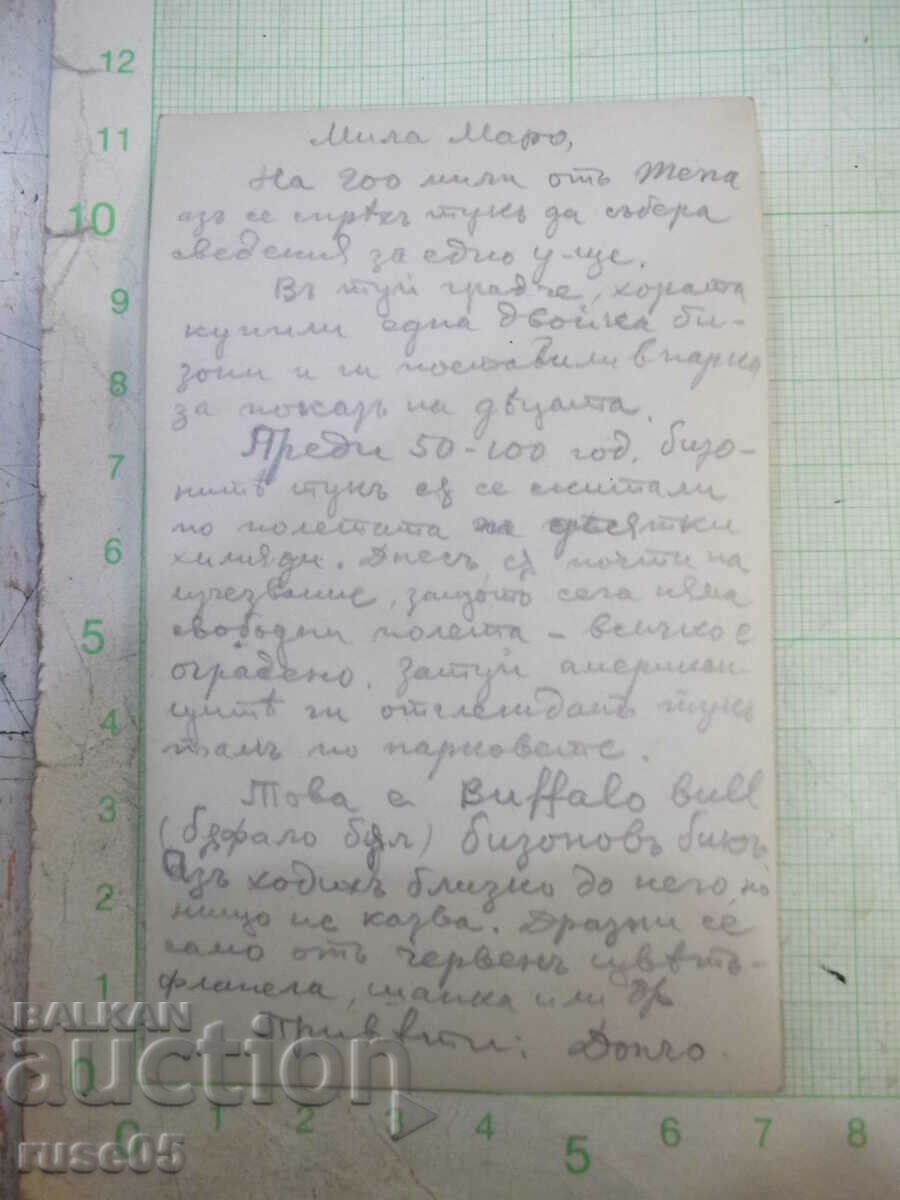 Мила Маро,
На 200 мили отъ
азъ се спрѣхъ тукъ да събера
сведения за едно у-ще.
Въ туй градче, хората
купили една двойка би-
зони и ги поставили в парка
за показъ на дѣцата.
Преди 50-100 год. бизо-
нитѣ тукъ сѫ се скитали
по полетата на десятки
хиляди. Днесъ, сѫ почти на
изчезвание, защото сега няма
свободни полета - всичко е
оградено. Затуй американ-
цитѣ ги отглеждатъ тукъ
тамъ по парковете.
Това е Buffalo bull
(бѫфало бѫл) бизоновъ бикъ
Азъ ходихъ близко до него, но
нищо не казва. Дразни се
само отъ червенъ цвѣтъ-
фланела, шапка или др
Привѣти: Дончо.
BALKAN
auction
ruse05
12
11
10
9
8
7
6
5
4
3
2
1
0
0 1 2 3 4 5 6 7 8